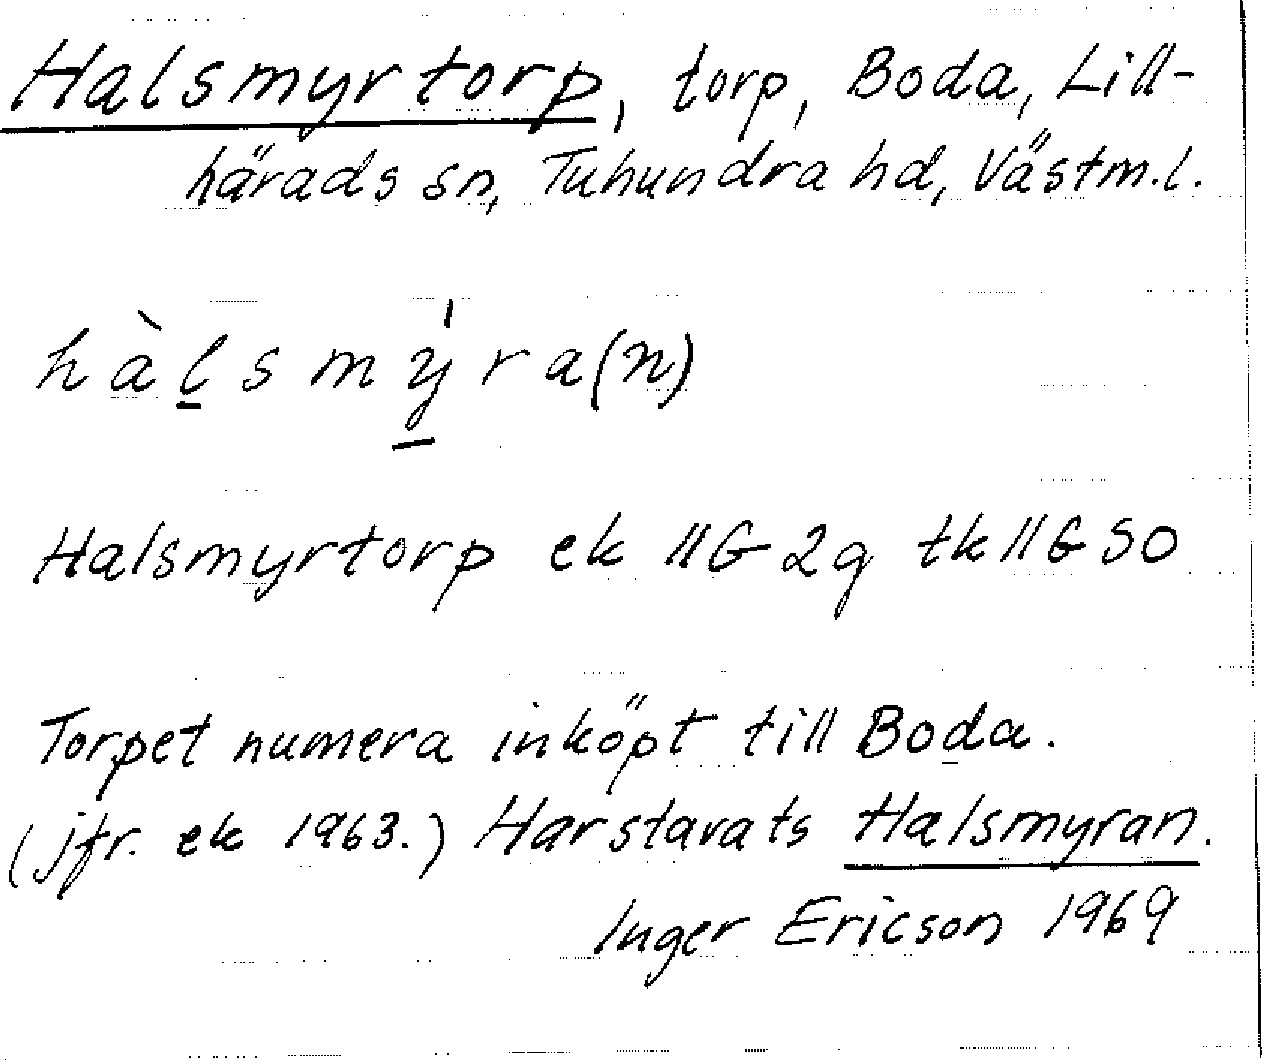 Halsmyrtorp, torp, Boda, Lill-
härads sn, Tuhundra hd, Västm.l.
hàl̲smy̲̍ra(n)
Halsmyrtorp ek 11G2g tk11G SO
Torpet numera inköpt till Boda.
(jfr. ek 1963.) Har stavats Halsmyran.
Inger Ericson 1969